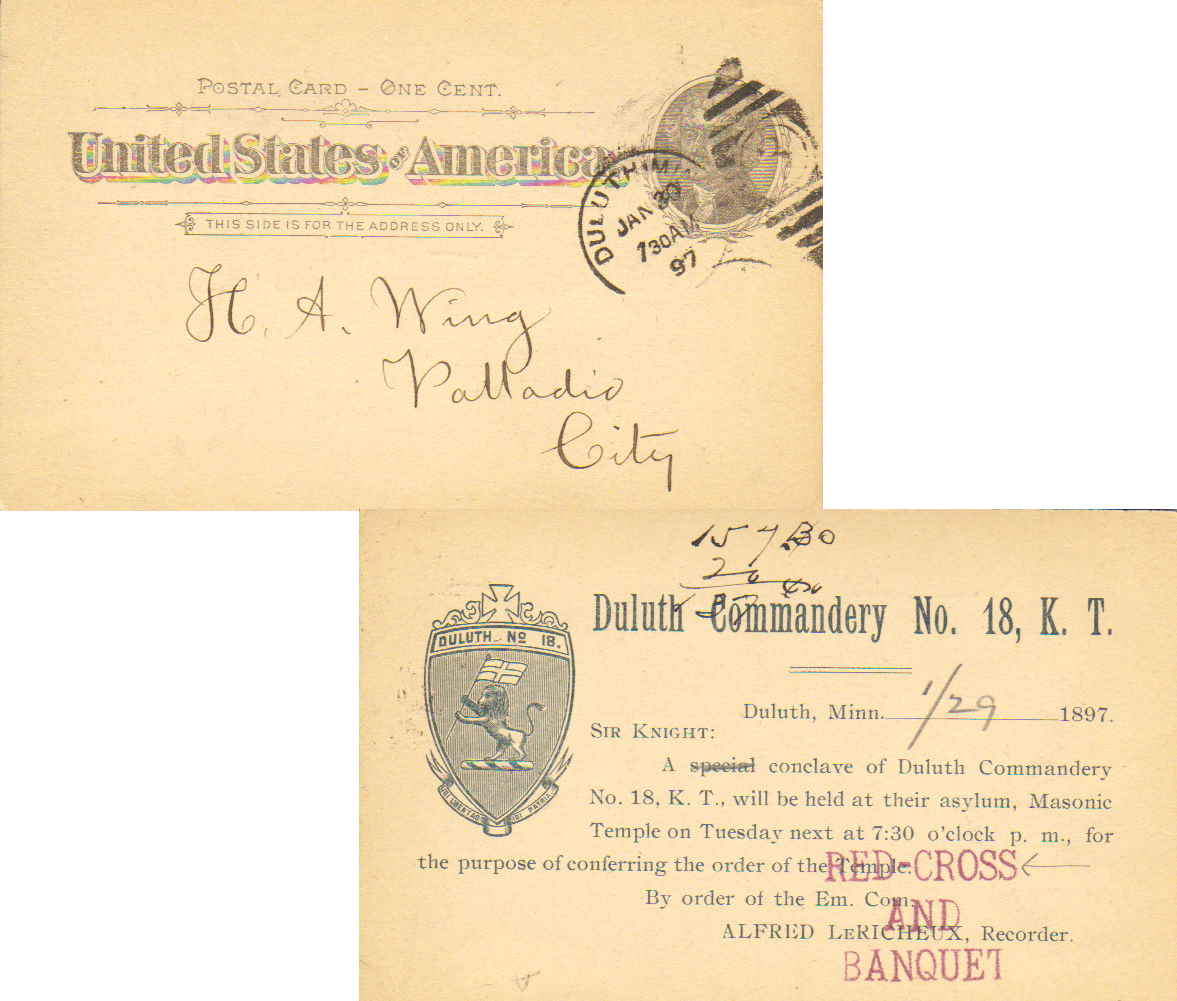 POSTAL CARD - ONE CENT.
United States OF America
THIS SIDE IS FOR THE ADDRESS ONLY.
DULUTH MINN
JAN 30
730AM
97
H. A. Wing
Palladio
City
15 7.30
20
Duluth Commandery No. 18, K. T.
DULUTH No 18.
UBI LIBERTAS IBI PATRIA
Duluth, Minn. 1/29 1897.
SIR KNIGHT:
A special conclave of Duluth Commandery
No. 18, K. T., will be held at their asylum, Masonic
Temple on Tuesday next at 7:30 o'clock p. m., for
the purpose of conferring the order of the Temple.
RED-CROSS
By order of the Em. Com.
AND
ALFRED LERICHEUX, Recorder.
BANQUET